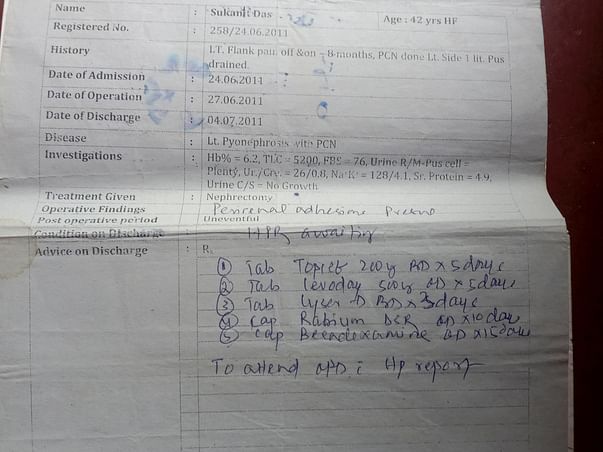 Name : Sukanit Das Age : 42 yrs HF
Registered No. : 258/24.06.2011
History : LT. Flank pain off &on – 8-months, PCN done Lt. Side 1 lit. Pus
drained.
Date of Admission : 24.06.2011
Date of Operation : 27.06.2011
Date of Discharge : 04.07.2011
Disease : Lt. Pyonephrosis with PCN
Investigations : Hb% = 6.2, TLC = 5200, FBS = 76, Urine R/M-Pus cell =
Plenty, Ur./Cre. = 26/0.8, Na+K+ = 128/4.1, Sr. Protein = 4.9,
Urine C/S = No Growth
Treatment Given : Nephrectomy
Operative Findings Perirenal adhesions Present
Post operative period Uneventful
Condition on Discharge : HPR awaiting
Advice on Discharge : Rx
① Tab 200g BD x 5days
② Tab Levoday 500g OD x 5days
③ Tab Lyser D BD x 3days
④ Cap Rabium DSR OD x 10days
⑤ Cap BD x 15days
To attend OPD c Hp report